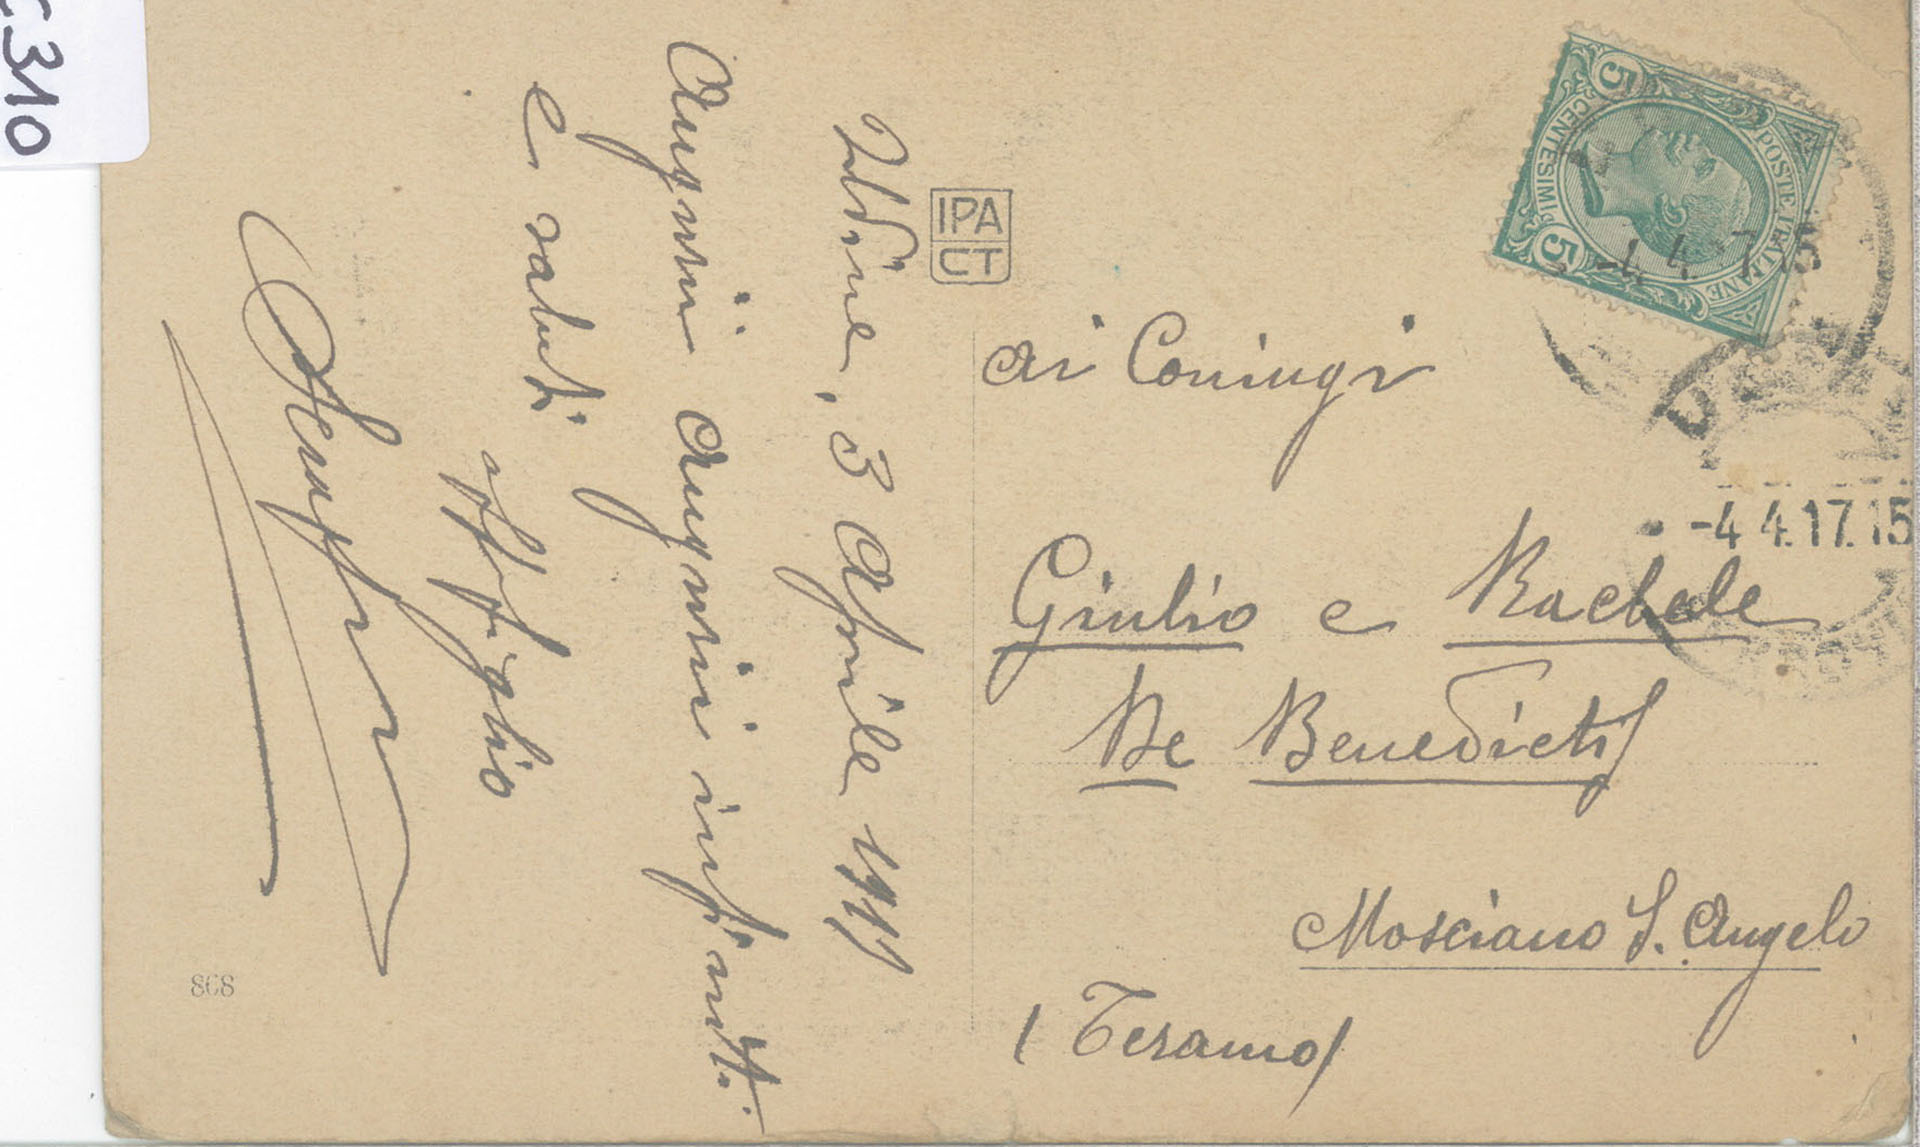 C310
Udine, 3 Aprile 1917
Auguri auguri infiniti
e saluti
aff. glio
IPA
CT
868
POSTE ITALIANE
CENTESIMI
5
5
-4.4.17.15
-4.4.17.15
ai Coniugi
Giulio e Rachele
De Benedictis
Mosciano S. Angelo
(Teramo)